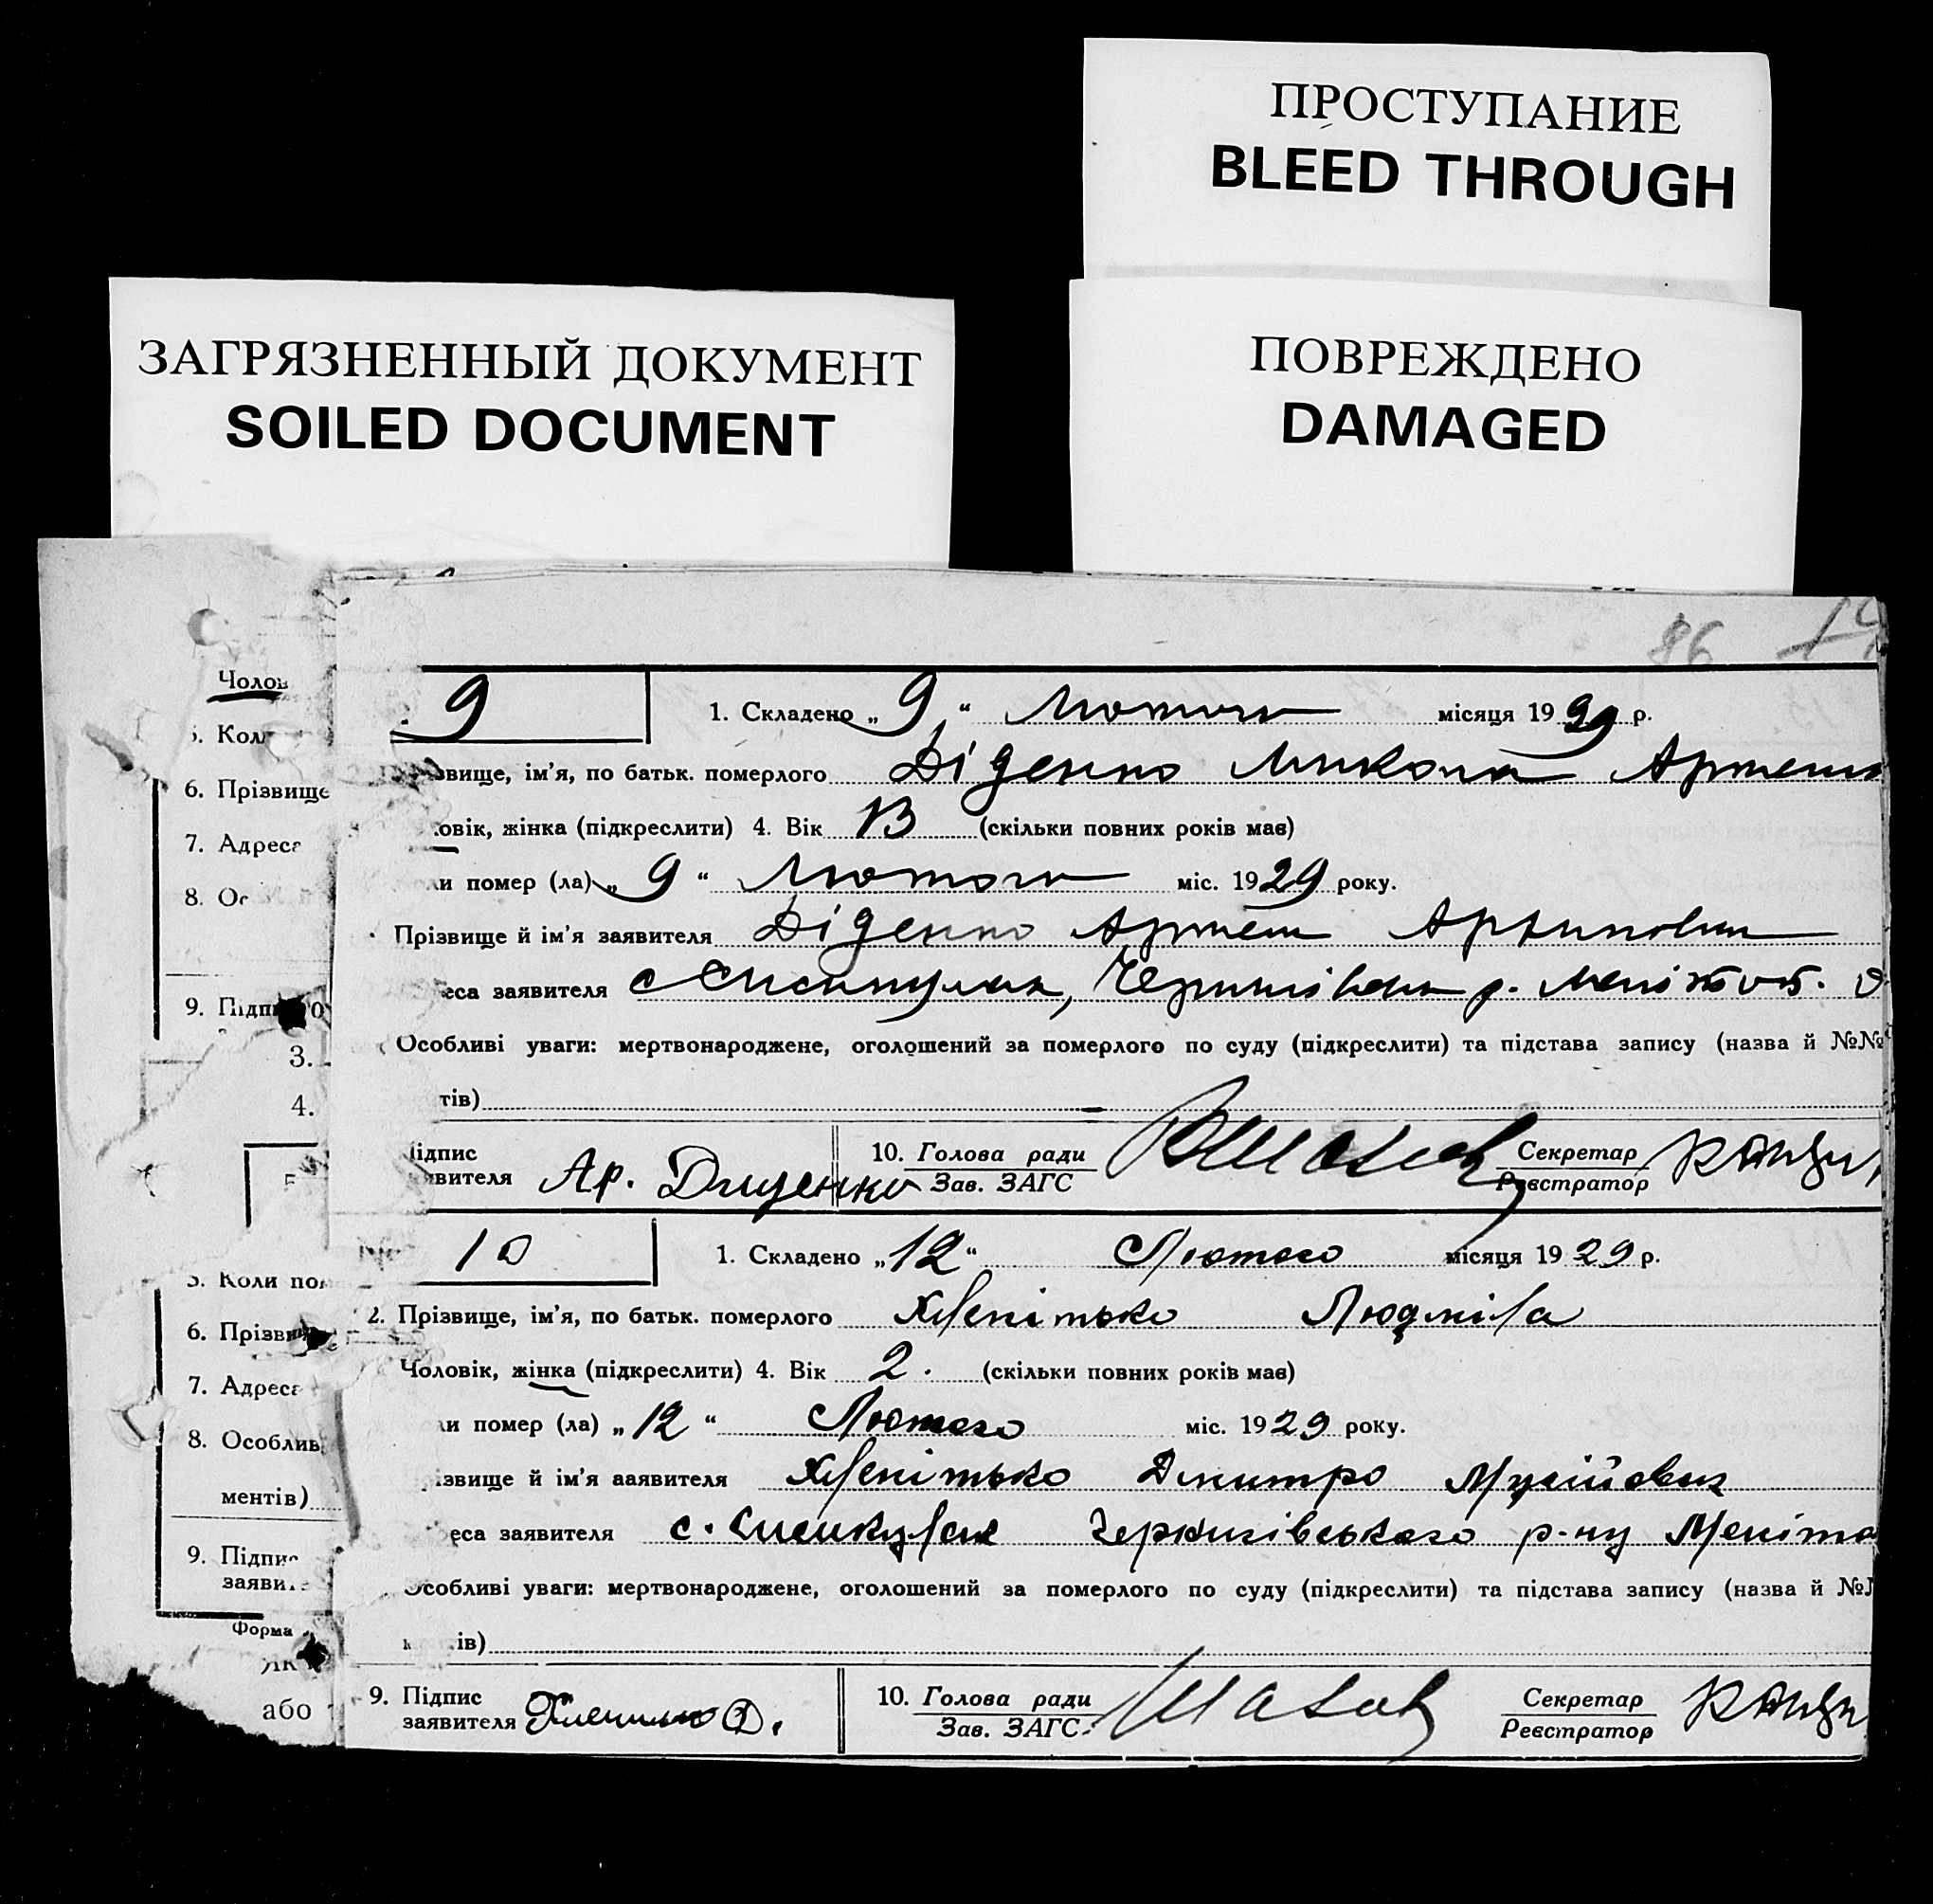 ПРОСТУПАНИЕ
BLEED THROUGH
ЗАГРЯЗНЕННЫЙ ДОКУМЕНТ
SOILED DOCUMENT
ПОВРЕЖДЕНО
DAMAGED
86
Чолов
6. Прізвище
7. Адреса
8. Ос
9. Підпи
3.
4.
5. Коли пом
6. Прізви
7. Адреса
8. Особлив
ментів)
9. Підпис
заяви
Форма
або
9 1. Складено „ 9 “ Лютого місяця 1929 р.
звище, ім'я, по батьк. померлого Діденко Микола Артемо
овік, жінка (підкреслити) 4. Вік 13 (скільки повних років має)
ли помер (ла) „ 9 “ Лютого міс. 1929 року.
Прізвище й ім'я заявителя Діденко Артем Архипович
еса заявителя р.
Особливі уваги: мертвонароджене, оголошений за померлого по суду (підкреслити) та підстава запису (назва й №№
тів)
ідпис
явителя Ар. Диденко
10. Голова ради
Зав. ЗАГС
Секретар
Реєстратор
10 1. Складено „ 12 “ Лютого місяця 1929 р.
2. Прізвище, ім'я, по батьк. померлого Хленітько Людміла
Чоловік, жінка (підкреслити) 4. Вік 2. (скільки повних років має)
ли помер (ла) „ 12 “ Лютого міс. 1929 року.
ізвище й ім'я заявителя Хленітько Дмитро Мусійович
еса заявителя с. Чернигівського р-ну Меліто
Особливі уваги: мертвонароджене, оголошений за померлого по суду (підкреслити) та підстава запису (назва й №№
ів)
9. Підпис
заявителя
10. Голова ради
Зав. ЗАГС.
Секретар
Реєстратор